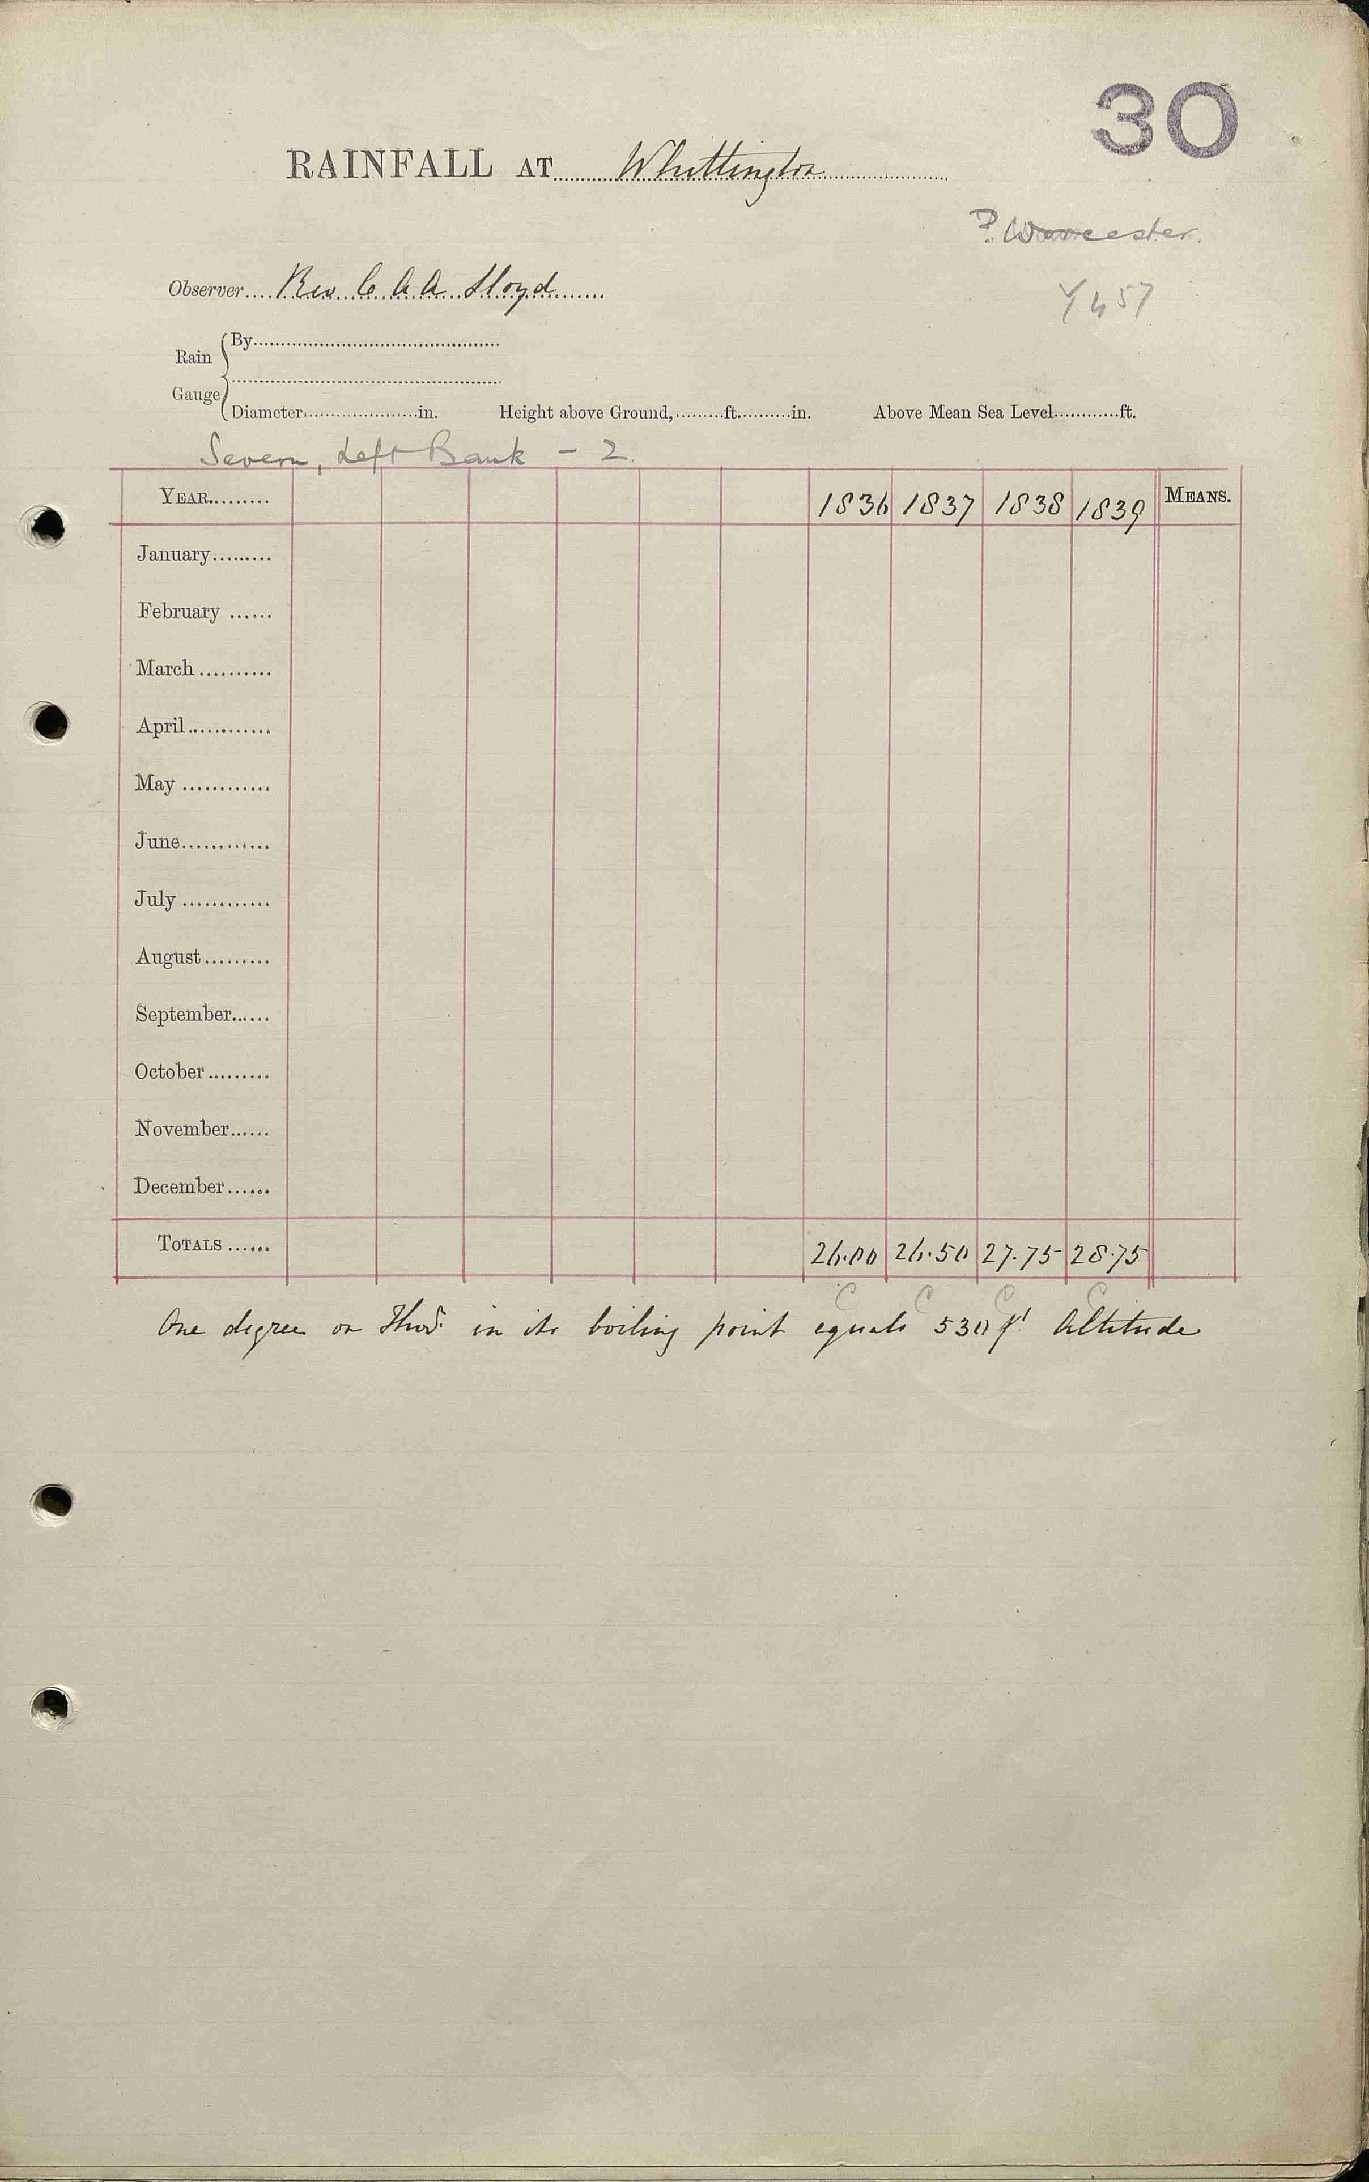 30
RAINFALL AT Whittington
? Worcester.
Observer Rev C A A Lloyd
Y 457
Rain Gauge
By
Diameter in. Height above Ground, ft. in. Above Mean Sea Level ft.
Severn, Left Bank - 2.
YEAR 1836 1837 1838 1839 MEANS.
January
February
March
April
May
June
July
August
September
October
November
December
TOTALS 26.00 26.50 27.75 28.75
C C C C
One degree on in its boiling point equals 530 ft Altitude